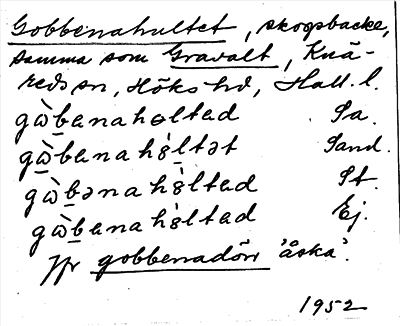 Gobbenahultet, skogsbacke,
samma som Gravalt, Knä-
reds sn, Höks hd, Hall. l.
gẁbenahòltad Sa.
gẁbenahòltət Sand.
gẁbənahòltad St.
gẁbenahòltad Ej.
Jfr gobbenadörr 'åska'.
1952